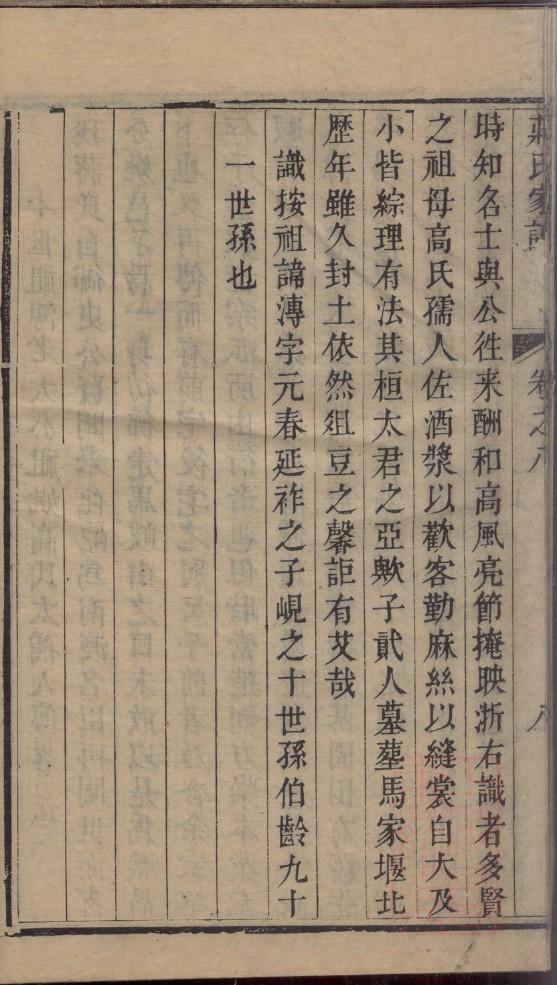 氏家譜
卷之八
八
時知名士與公徃来酬和高風亮節掩映浙右識者多賢
之祖母高氏孺人佐酒漿以歡客勤麻絲以縫裳自大及
小皆綜理有法其桓太君之亞歟子貳人墓塟馬家堰北
歴年雖久封土依然俎豆之馨詎有艾哉
識按祖諱漙字元春延祚之子峴之十世孫伯齡九十
一世孫也